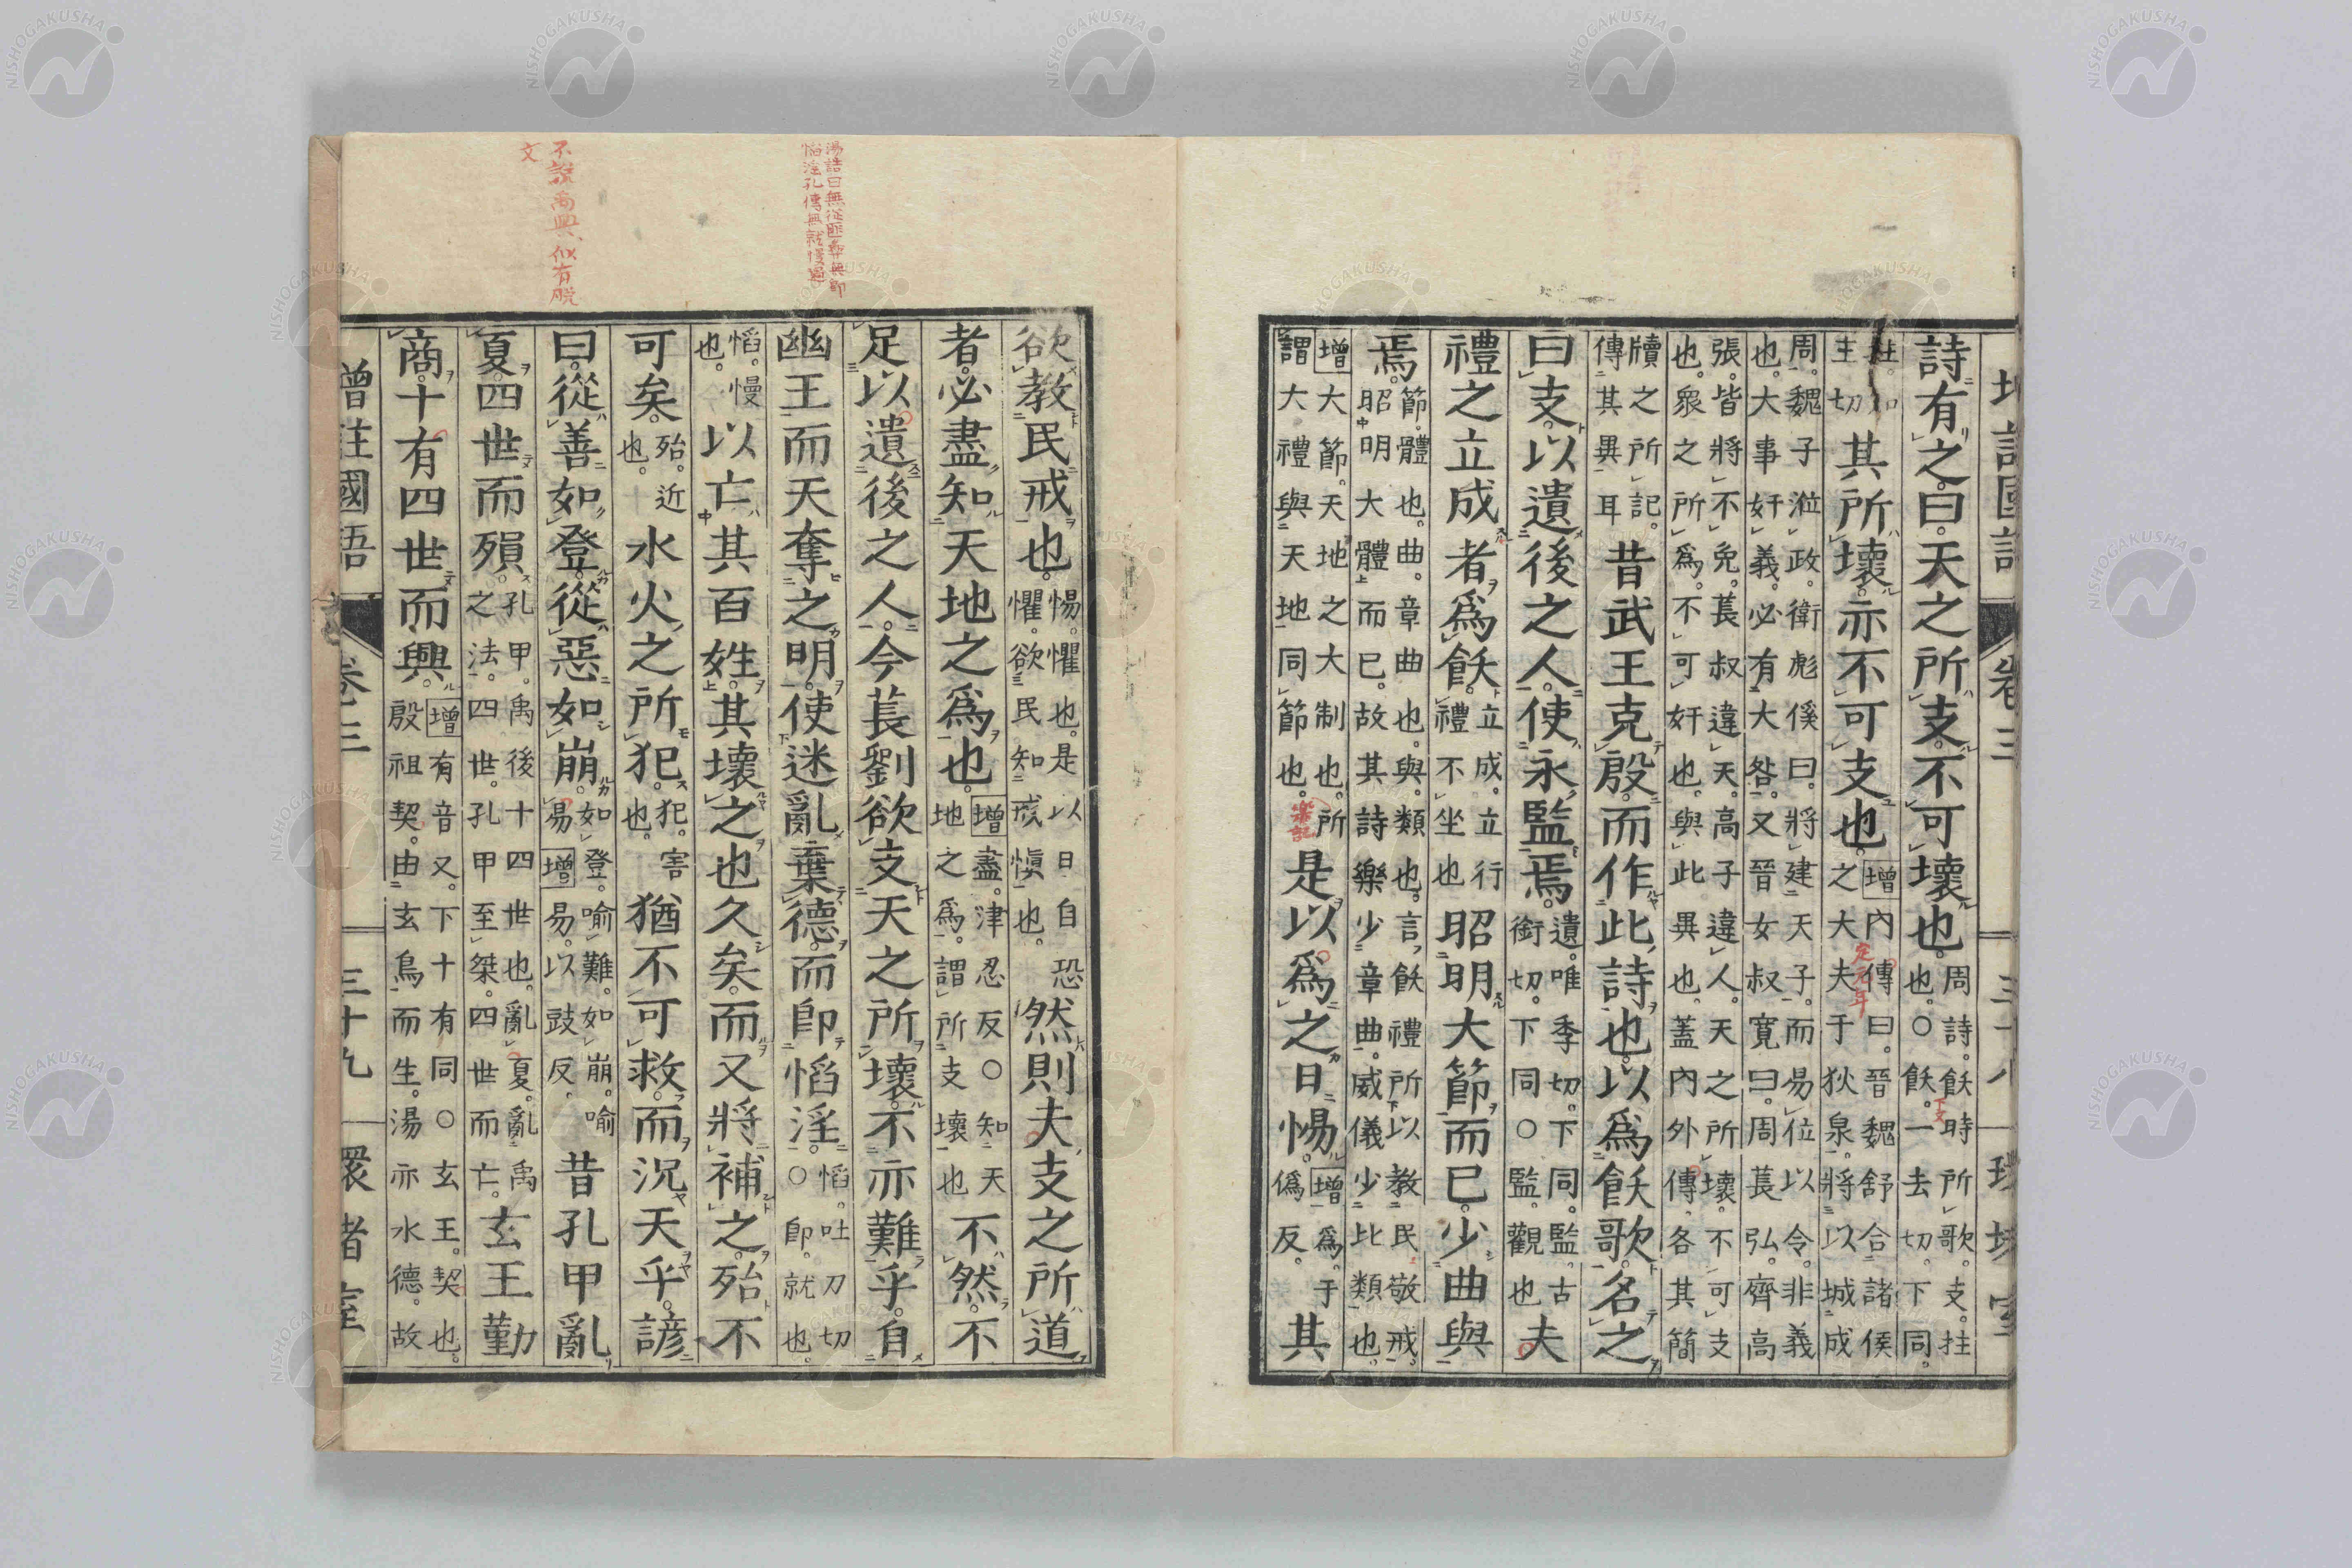 詩有之曰天之所支不可壞也周詩飫時所歌支拄也○飫一去切下同
主切其所壞亦不可支也增內傳曰晉魏舒合諸侯之大夫于狄泉將以城成
周魏子涖政衛彪傒曰將建天子而易位以令非義也大事奸義必有大咎又晉女叔寬曰周萇弘齊高
張皆將不免萇叔違天高子違人天之所壞不可支也衆之所爲不可奸也與此異也蓋內外傳各其簡
牘之所記傳其異耳昔武王克殷而作此詩也以爲飫歌名之
曰支以遺後之人使永監焉遺唯季切下同監古銜切下同○監觀也夫
禮之立成者爲飫立成立行禮不坐也昭明大節而已少曲與
焉節體也曲章曲也與類也言飫禮所以教民敬戒昭明大體而已故其詩樂少章曲威儀少比類也
增大節天地之大制也所謂大禮與天地同節也是以爲之日惕增爲于僞反其
欲教民戒也惕懼也是以日自恐懼欲民知戒愼也然則夫支之所道
者必盡知天地之爲也增盡津忍反○知天地之爲謂所支壞也不然不
足以遺後之人今萇劉欲支天之所壞不亦難乎自
幽王而天奪之明使迷亂棄德而卽慆淫慆吐刀切○卽就也
慆慢也以亡其百姓其壞之也久矣而又將補之殆不
可矣殆近也水火之所犯犯害也猶不可救而況天乎諺
曰從善如登從惡如崩如登喻難如崩喻易增易以豉反昔孔甲亂
夏四世而殞孔甲禹後十四世也亂夏亂禹之法四世孔甲至桀四世而亡玄王勤
商十有四世而興增有音又下十有同○玄王契也殷祖契由玄鳥而生湯亦水德故
增註國語
卷三
三十九
環堵室
湯誥曰無從匪彝無卽
慆淫孔傳無就慢過
不說禹興似有脫
文
樂記
定元年
下文
卷三